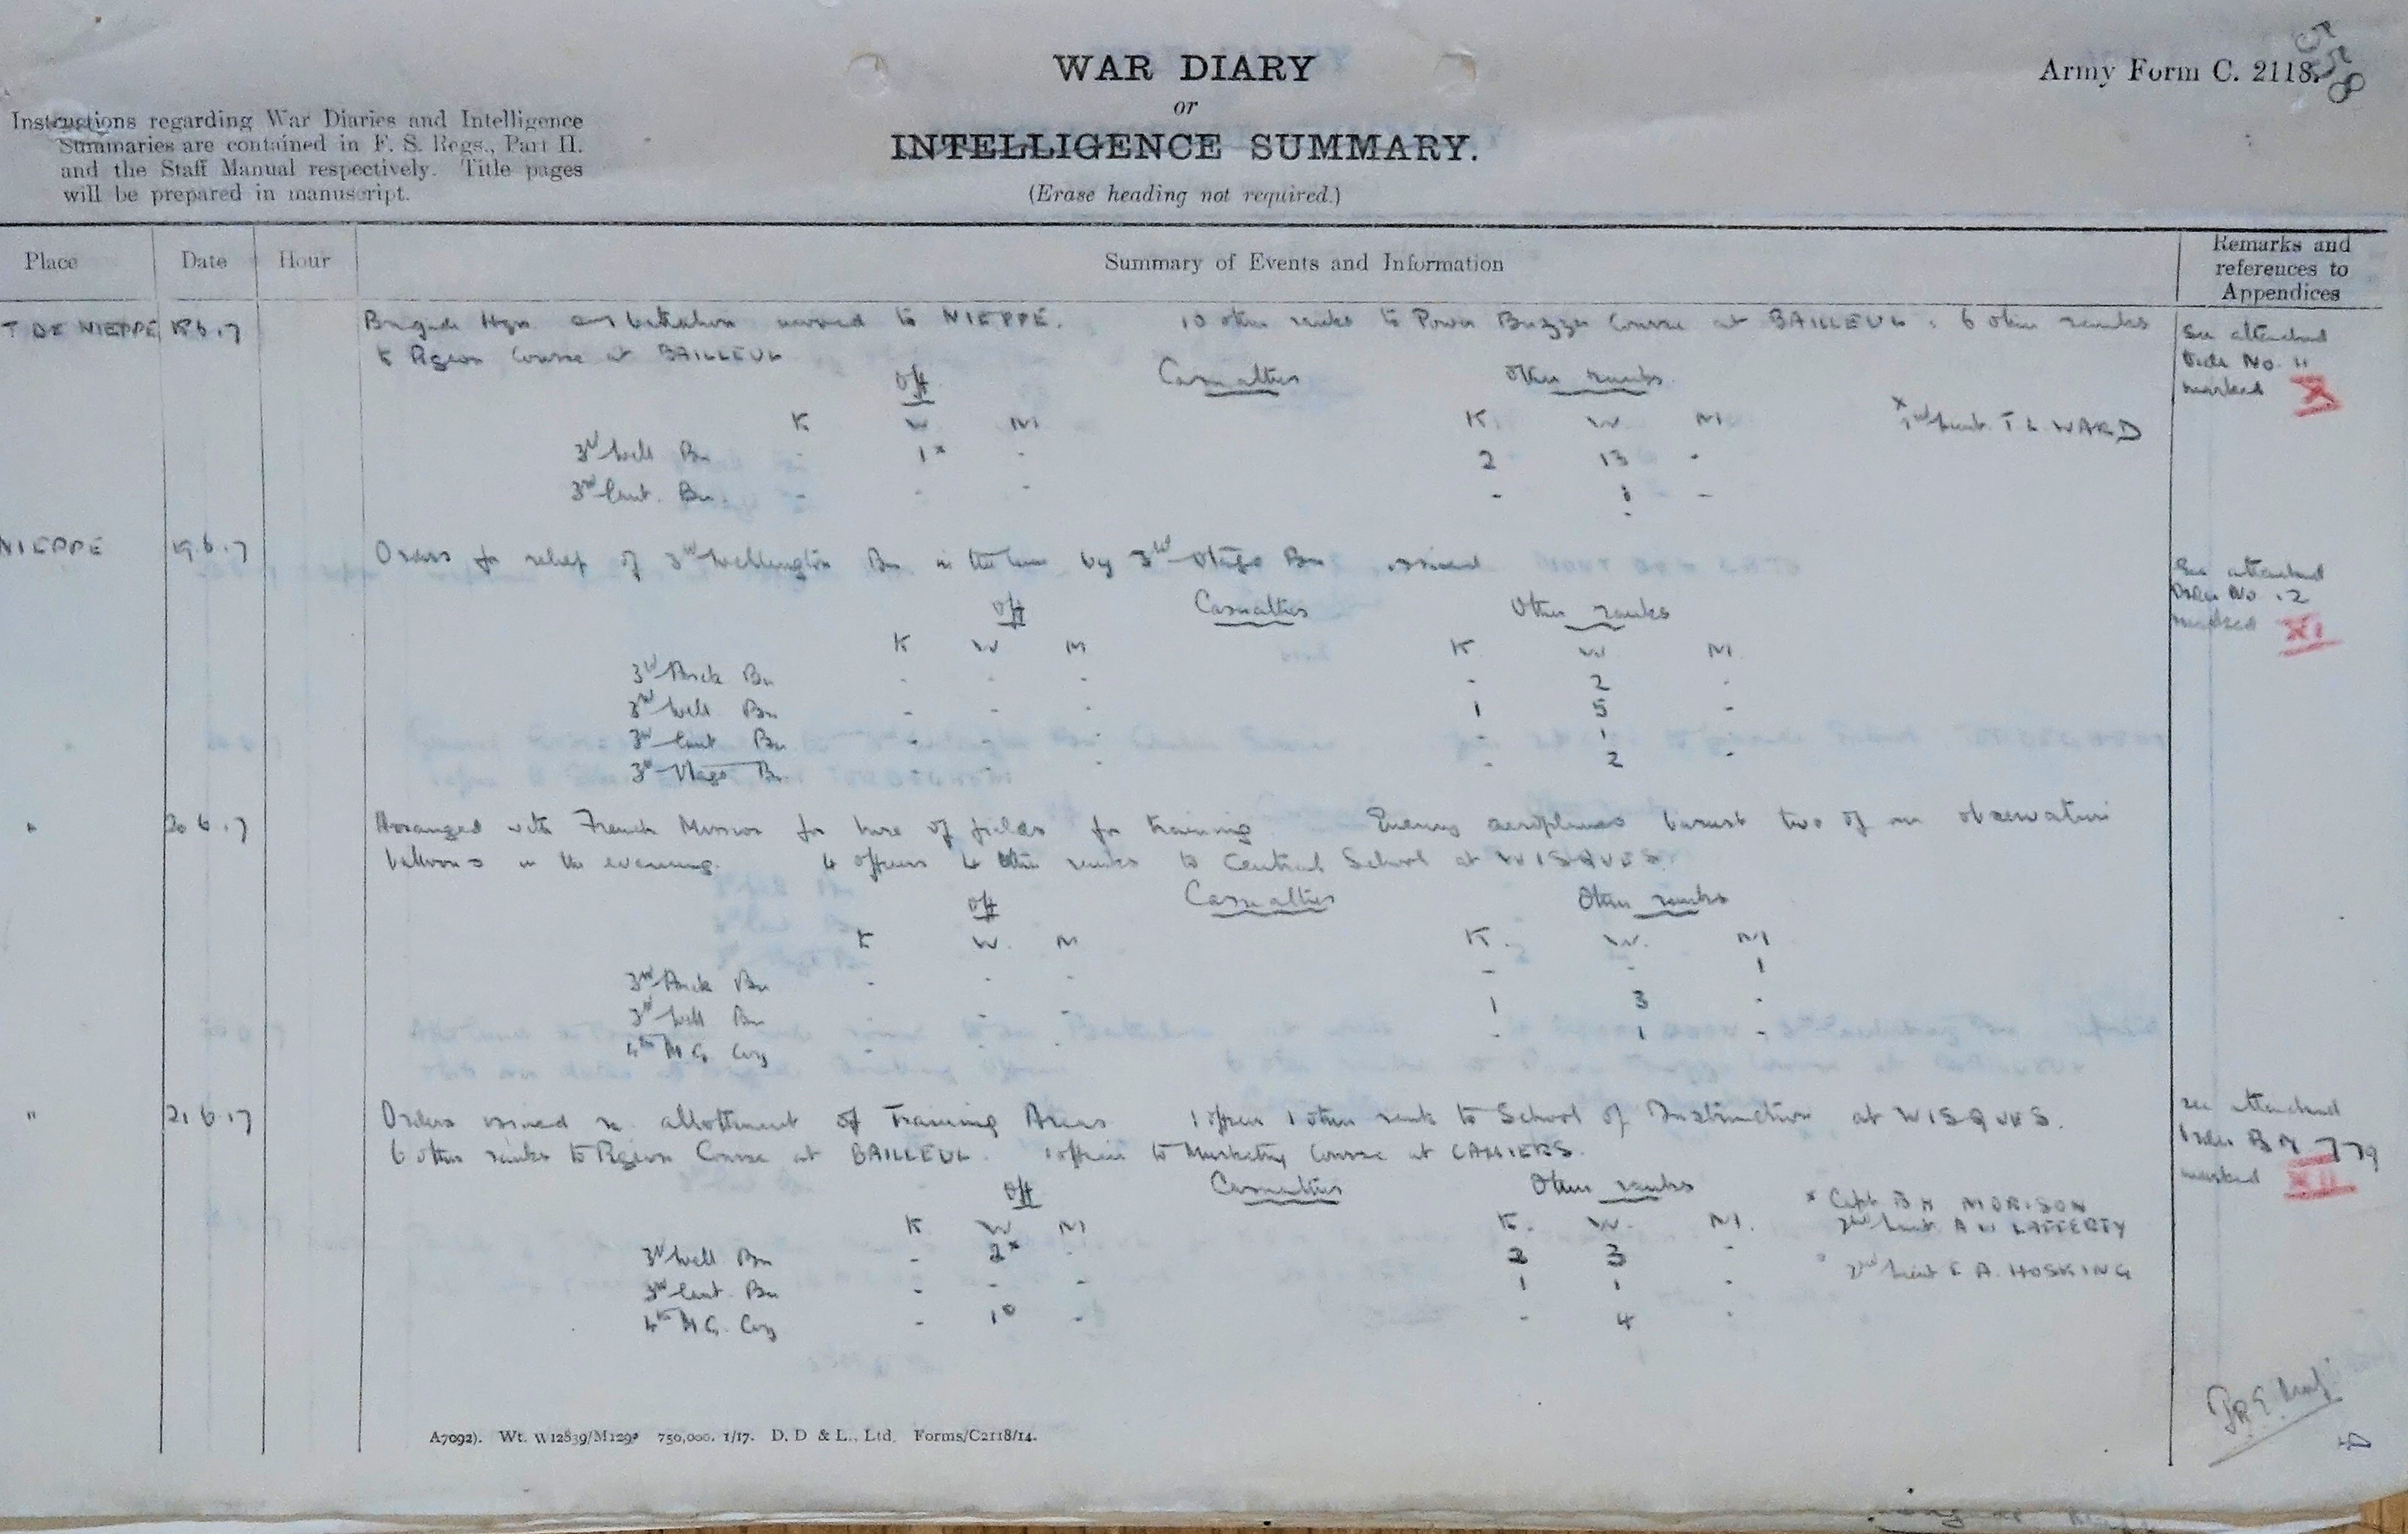 WAR DIARY
or
INTELLIGENCE SUMMARY.
(Erase heading not required.)
Army Form C. 2118.
Instructions regarding War Diaries and Intelligence
Summaries are contained in F. S. Regs., Part II.
and the Staff Manual respectively. Title pages
will be prepared in manuscript.
Place Date Hour Summary of Events and Information Remarks and references to Appendices
T DE NIEPPE 18.6.17 Brigade Hqrs. and battalion moved to NIEPPE. 10 other ranks to Power Buzzer Course at BAILLEUL. 6 other ranks
to Pigeon Course at BAILLEUL
See attached
Order No. 11
marked X
Off Casualties Other ranks
K W M K W M
x 2nd Lieut. T L WARD
3rd Well Bn - 1x - 2 13 -
3rd Cant. Bn - - - - 1 -
NIEPPE 19.6.17 Orders for relief of 3rd Wellington Bn in the line by 3rd Otago Bn issued
See attached
Order No 12
marked XI
Off Casualties Other ranks
K W M K W M
3rd Auck Bn - - - - 2 -
3rd Well Bn - - - 1 5 -
3rd Cant Bn - - - - 1
3rd Otago Bn - - - 2 -
" 20.6.17 Arranged with French Mission for hire of fields for training Enemy aeroplanes burst two of our observation
balloons in the evening. 4 officers 4 other ranks to Central School at WISQUES.
Off Casualties Other ranks
K W. M K. W. M
3rd Auck Bn - - - - - 1
3rd Well Bn - - 1 3 -
4th M G. Coy - - - - 1 -
" 21.6.17 Orders issued re allottment of Training Areas 1 officer 1 other rank to School of Instruction at WISQUES.
6 other ranks to Pigeon Course at BAILLEUL. 1 officer to Musketry Course at CAMIERS.
see attached
Order B M 779
marked XII
Off Casualties Other ranks
K W M K. W. M.
x Capt. B H MORISON
2nd Lieut. A W LAFFERTY
3rd Well Bn - 2x - 2 3 -
° 2nd Lieut E A. HOSKING
3rd Cant. Bn - - - 1 1 -
4th M G. Coy - 1° - - 4 -
A7092). Wt. W12839/M1293 750,000. 1/17. D. D & L., Ltd. Forms/C2118/14.